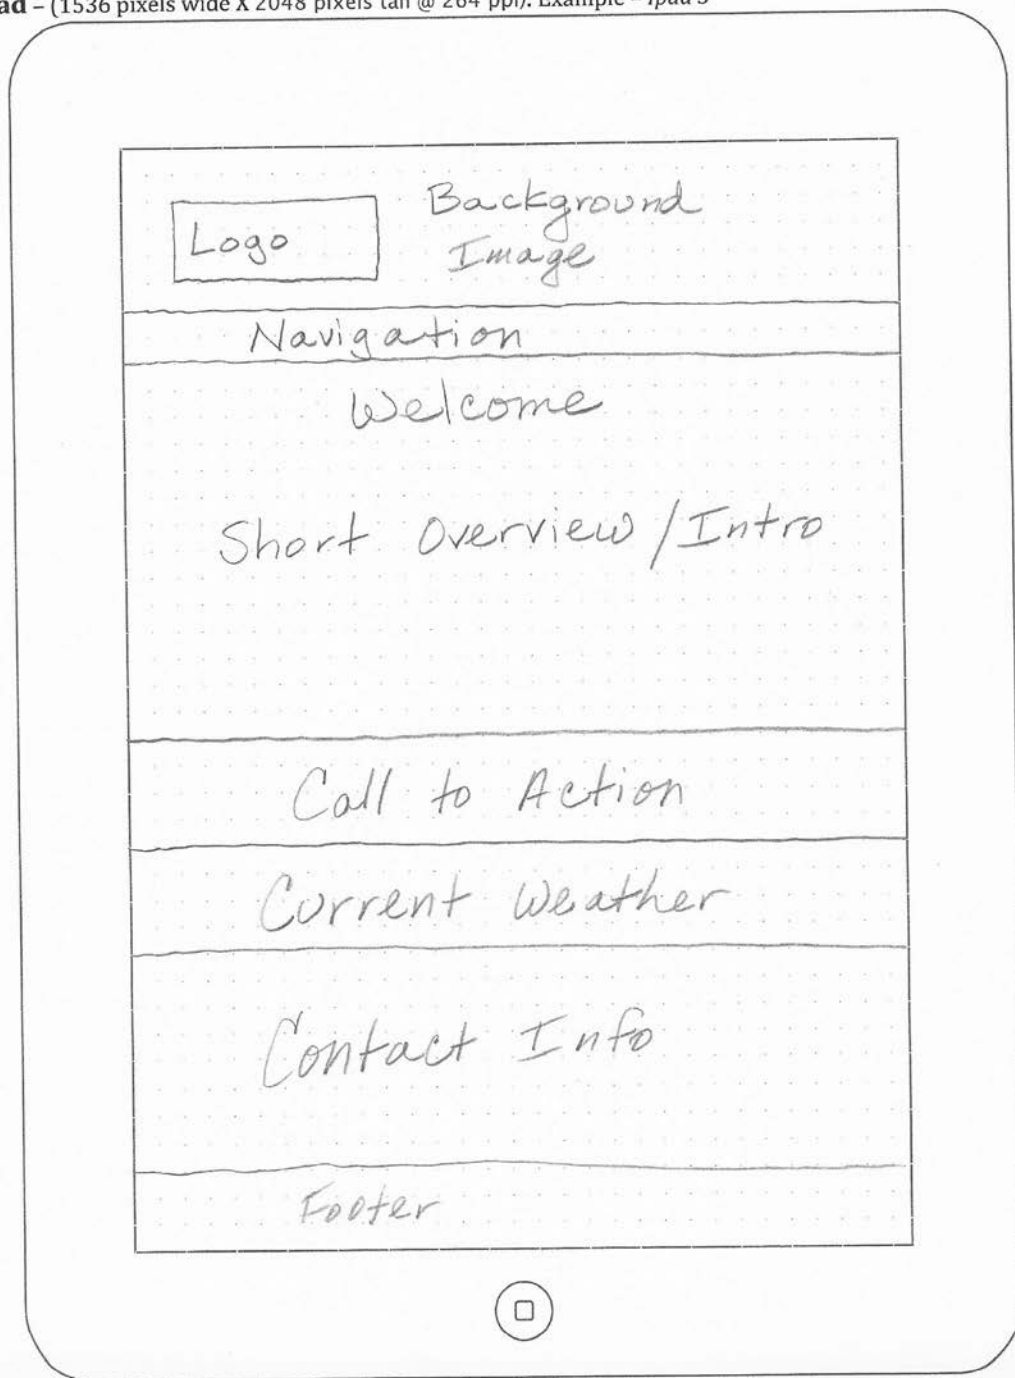 ad – (1536 pixels wide X 2048 pixels tall @ 264 ppi). Example – ipad 3
Background
Logo
Image
Navigation
Welcome
Short Overview / Intro
Call to Action
Current Weather
Contact Info
Footer